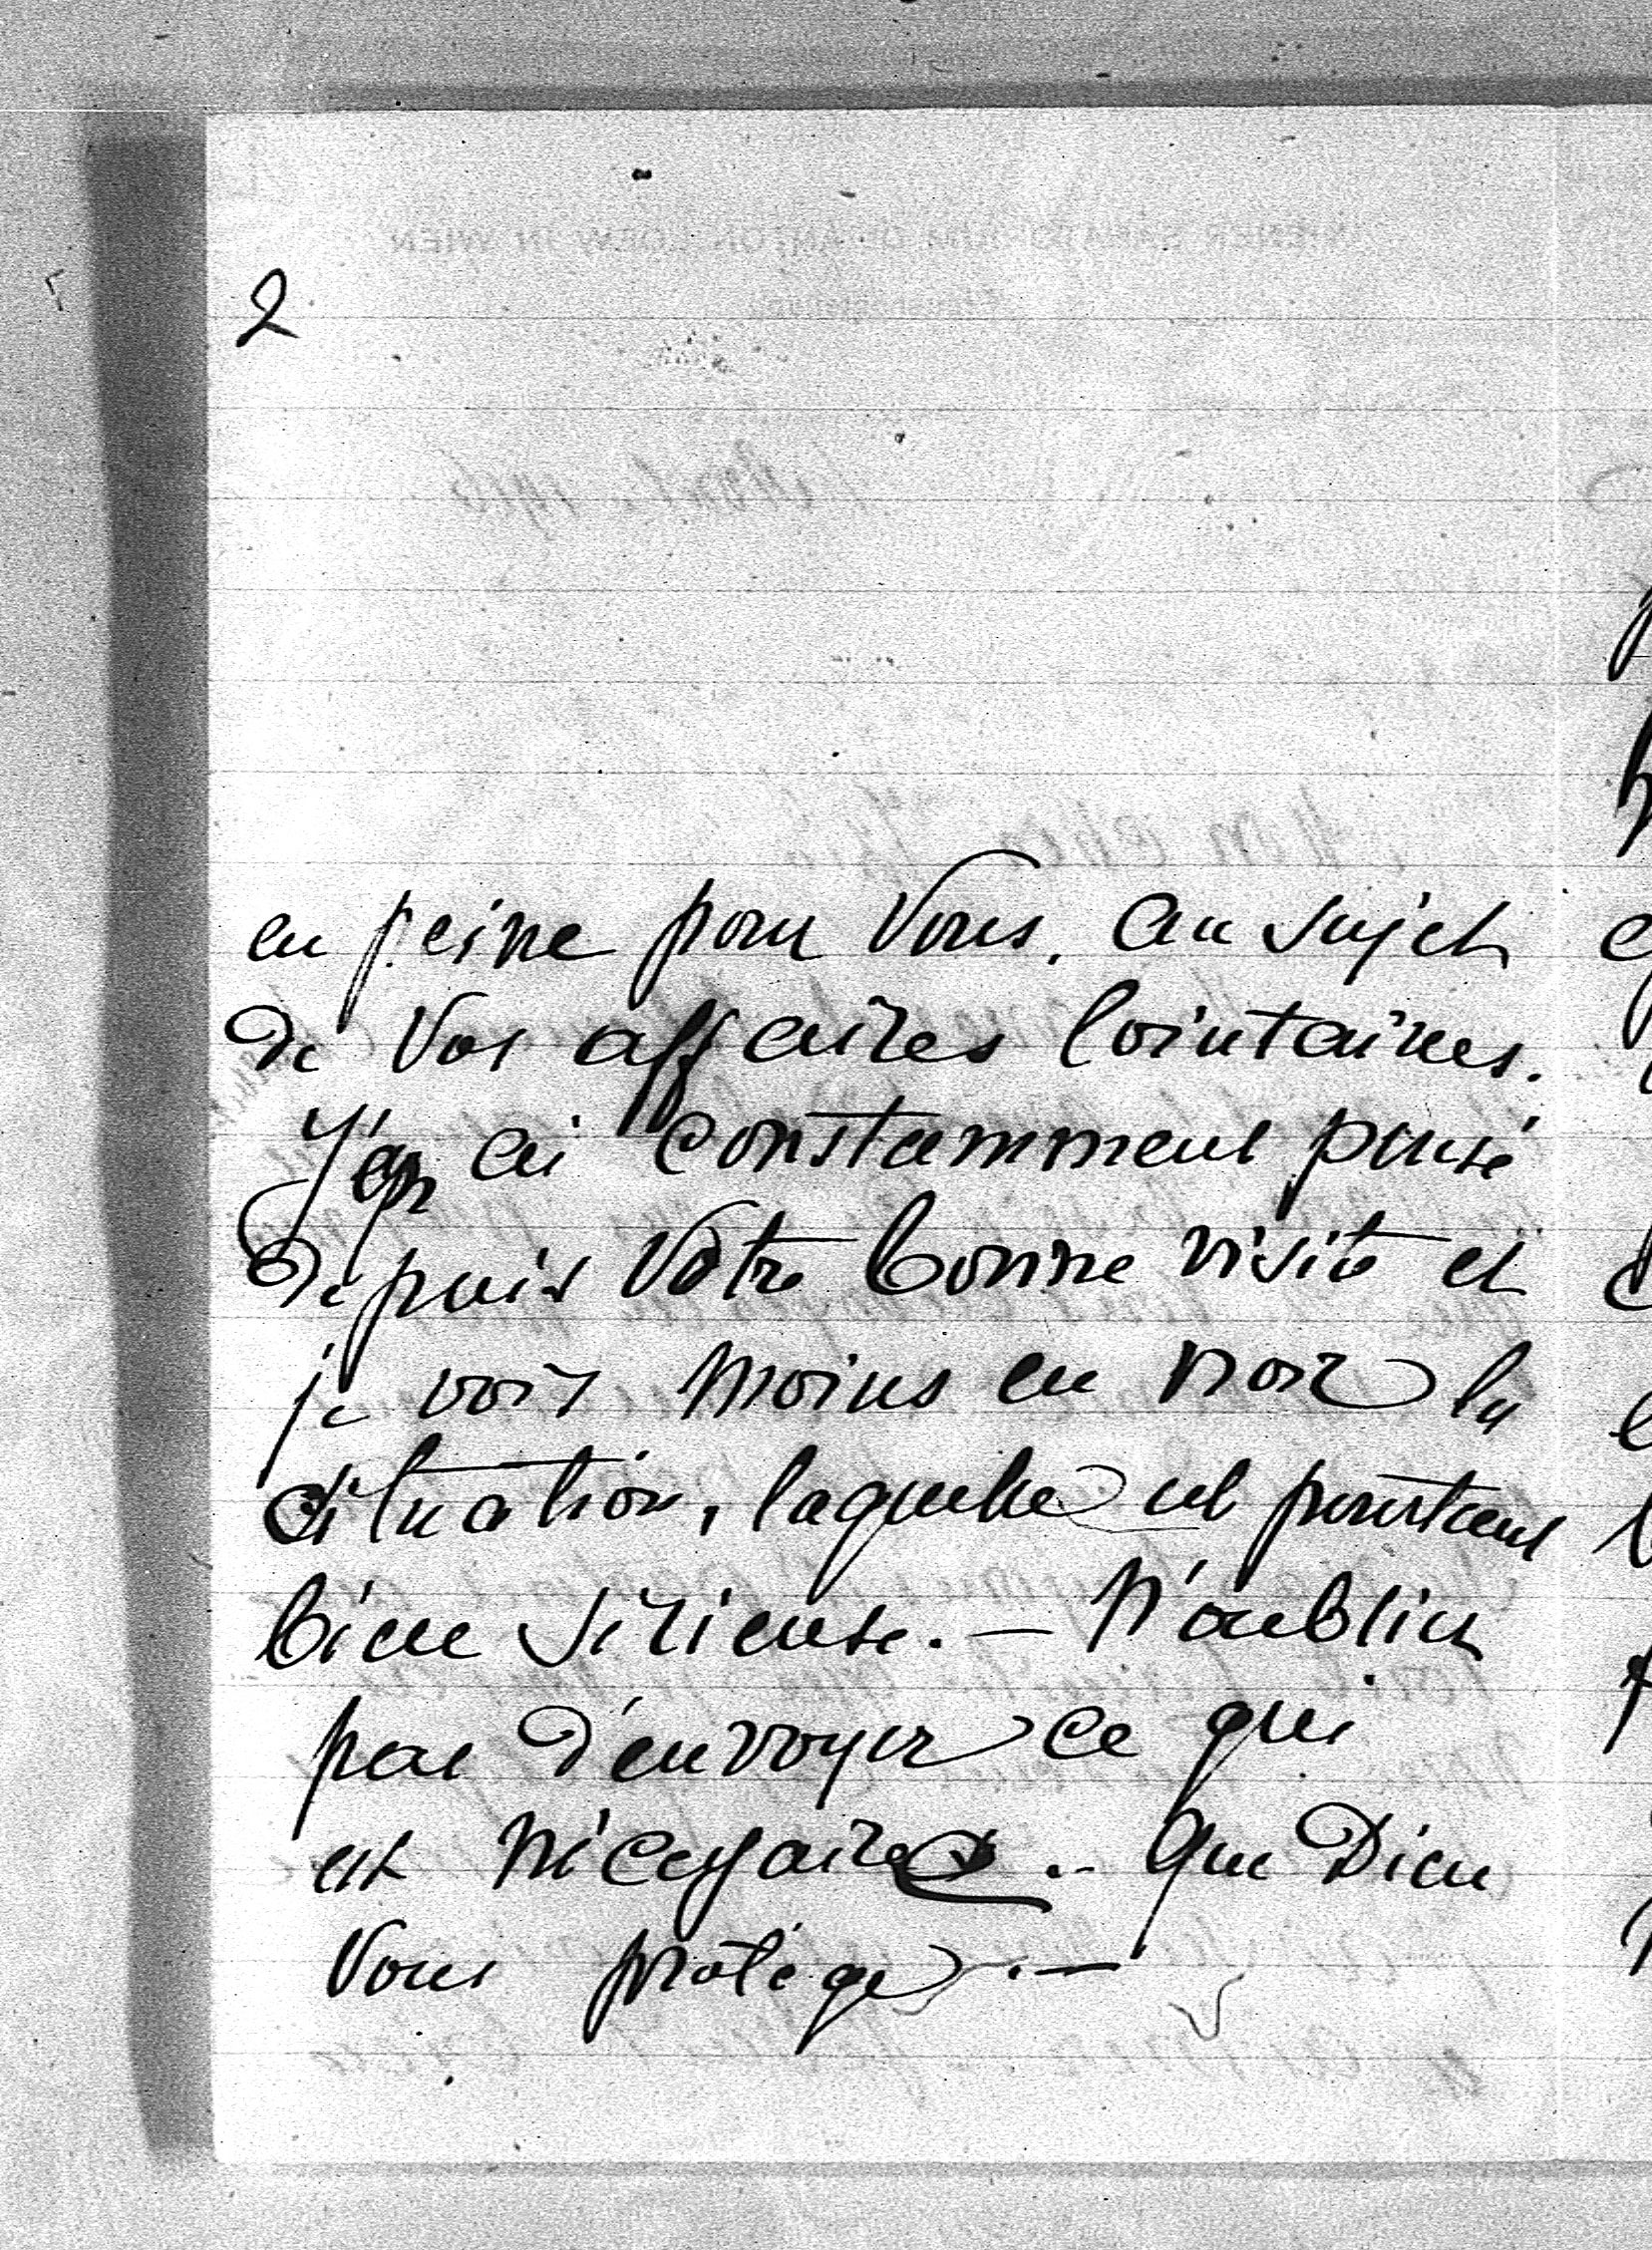 2
en peine pour Vous. Au sujet
de Vos affaires lointaines.
J'en ai constamment pensé
depuis Votre bonne visite et
je vois moins en noir la
situation, laquelle est pourtant
bien sérieuse. — N'oubliez
pas d'envoyer ce qui
est nécessaire. – Que Dieu
Vous protège. —